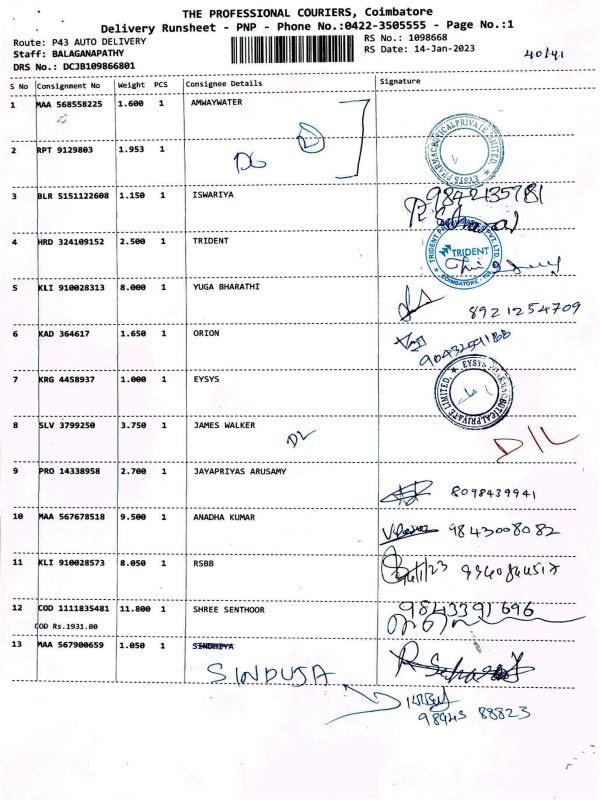 THE PROFESSIONAL COURIERS, Coimbatore
Delivery Runsheet - PNP - Phone No.:0422-3505555 - Page No.:1
Route: P43 AUTO DELIVERY
Staff: BALAGANAPATHY
DRS No.: DCJB109866801
RS No.: 1098668
RS Date: 14-Jan-2023
40/41
S No Consignment No Weight PCS Consignee Details Signature
1 MAA 568558225 1.600 1 AMWAYWATER
2 RPT 9129803 1.953 1
EYSYS PHARMACEUTICALPRIVATE LIMITED.
3 BLR 5151122608 1.150 1 ISWARIYA
9842135781
4 HRD 324109152 2.500 1 TRIDENT
TRIDENT
COIMBATORE
5 KLI 910028313 8.000 1 YUGA BHARATHI
8921254709
6 KAD 364617 1.650 1 ORION
7 KRG 4458937 1.000 1 EYSYS
EYSYS PHARMACEUTICALPRIVATE LIMITED.
8 SLV 3799250 3.750 1 JAMES WALKER
DL
D/L
9 PRO 14338958 2.700 1 JAYAPRIYAS ARUSAMY
8098439941
10 MAA 567678518 9.500 1 ANADHA KUMAR
9843008082
11 KLI 910028573 8.050 1 RSBB
12 COD 1111835481 11.800 1 SHREE SENTHOOR
9843391696
COD Rs.1931.00
13 MAA 567900659 1.050 1
SINDUJA
98943 88823